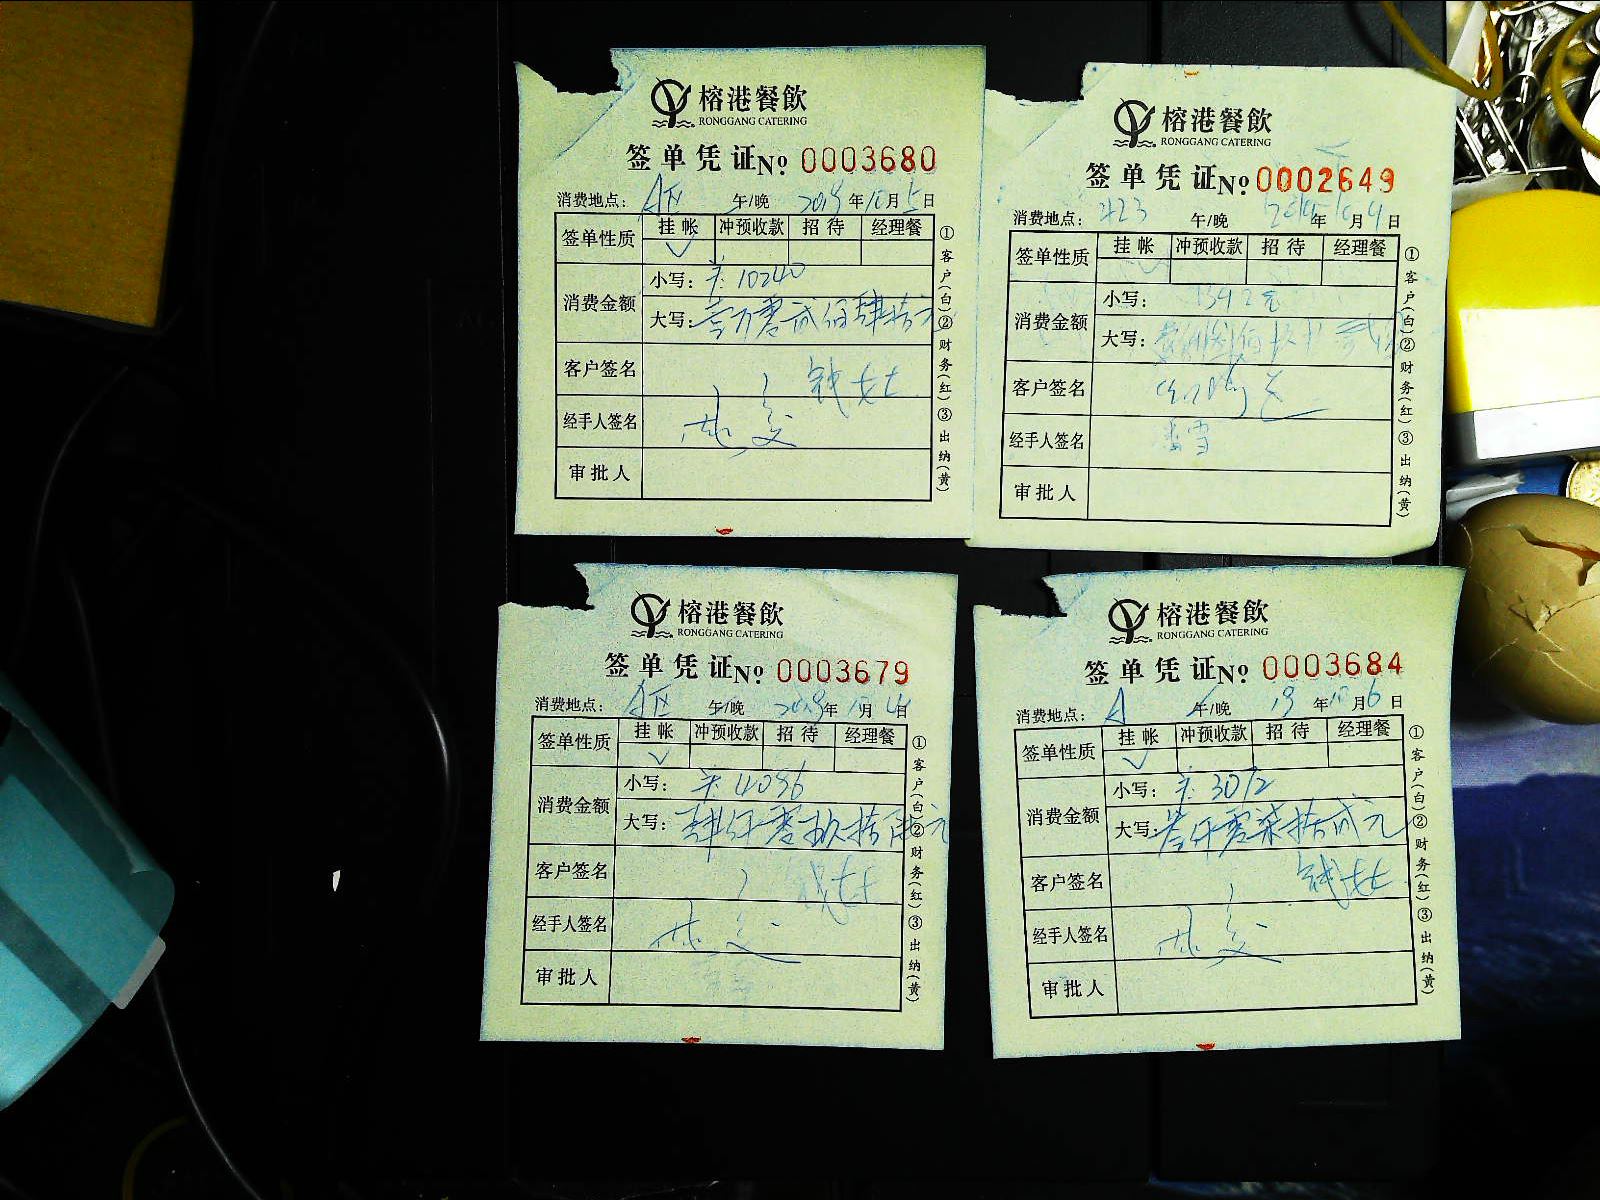 榕港餐飲
RONGGANG CATERING
签单凭证 No. 0003680
消费地点: A区 午/晚 2019年10月5日
签单性质 挂帐 冲预收款 招待 经理餐
消费金额 小写: 10240
大写: 壹万零贰佰肆拾元
客户签名 钱女士
经手人签名
审批人
①客户(白)②财务(红)③出纳(黄)
榕港餐飲
RONGGANG CATERING
签单凭证 No. 0002649
消费地点: 午/晚 年 月4日
签单性质 挂帐 冲预收款 招待 经理餐
消费金额 小写:
大写:
客户签名
经手人签名
审批人
①客户(白)②财务(红)③出纳(黄)
榕港餐飲
RONGGANG CATERING
签单凭证 No. 0003679
消费地点: A区 午/晚 2019年10月4日
签单性质 挂帐 冲预收款 招待 经理餐
消费金额 小写: 4096
大写: 肆仟零玖拾陆元
客户签名 钱女士
经手人签名
审批人
①客户(白)②财务(红)③出纳(黄)
榕港餐飲
RONGGANG CATERING
签单凭证 No. 0003684
消费地点: A 午/晚 19年10月6日
签单性质 挂帐 冲预收款 招待 经理餐
消费金额 小写: 3072
大写: 叁仟零柒拾贰元
客户签名 钱女士
经手人签名
审批人
①客户(白)②财务(红)③出纳(黄)